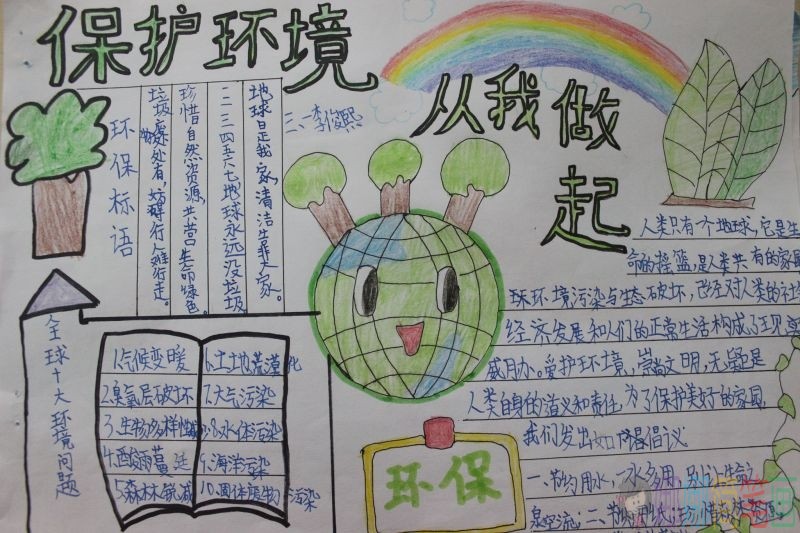 保护环境
从我做起
三、一李俊熙
环保标语
地球是我家,清洁靠大家。
一二三四五六七地球永远没垃圾
珍惜自然资源,共营生命绿色。
垃圾处处有,妨碍行人难行走。
全球十大环境问题
1.气候变暖
2.臭氧层破坏
3.生物多样性减
4.酸雨蔓延
5.森林锐减
6.土地荒漠化
7.大气污染
8.水体污染
9.海洋污染
10.固体废物污染
环保
人类只有一个地球,它是生
命的摇篮,是人类共有的家园
环境污染与生态破坏,已经对人类的社
经济发展和人们的正常生活构成了现实
威胁。爱护环境,崇尚文明,无疑是
人类自身的道义和责任,为了保护美好的家园,
我们发出如下倡议
一、节约用水,一水多用,别让生命之
泉空流;二、节约用纸;珍惜森林资源,